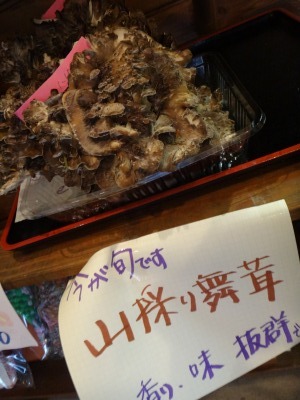 今が旬です
山採り舞茸
香り、味 抜群
0